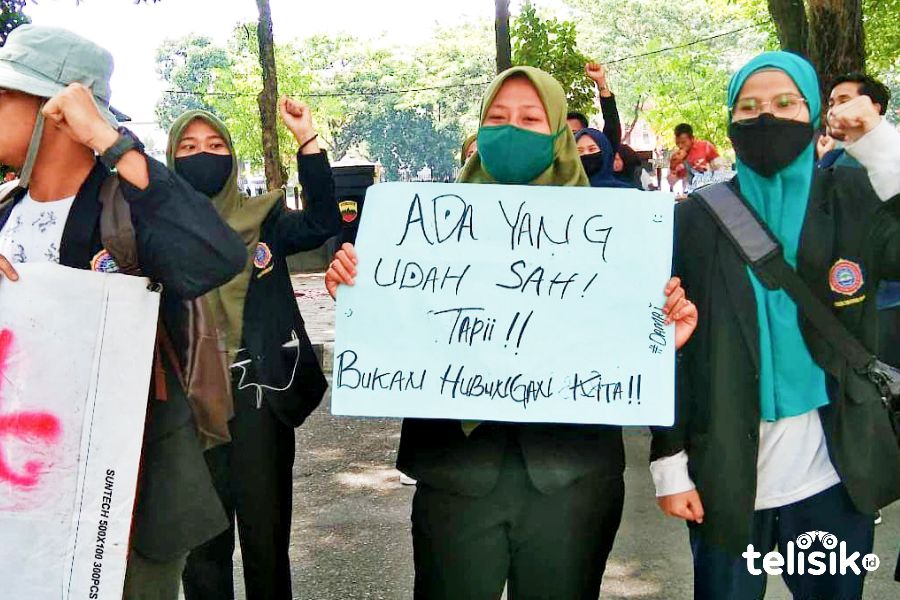 ADA YANG
UDAH SAH!
TAPII!!
BUKAN HUBUNGAN KITA!!
#DAMAI
SUNTECH 500X100 300PCS
telisik.id